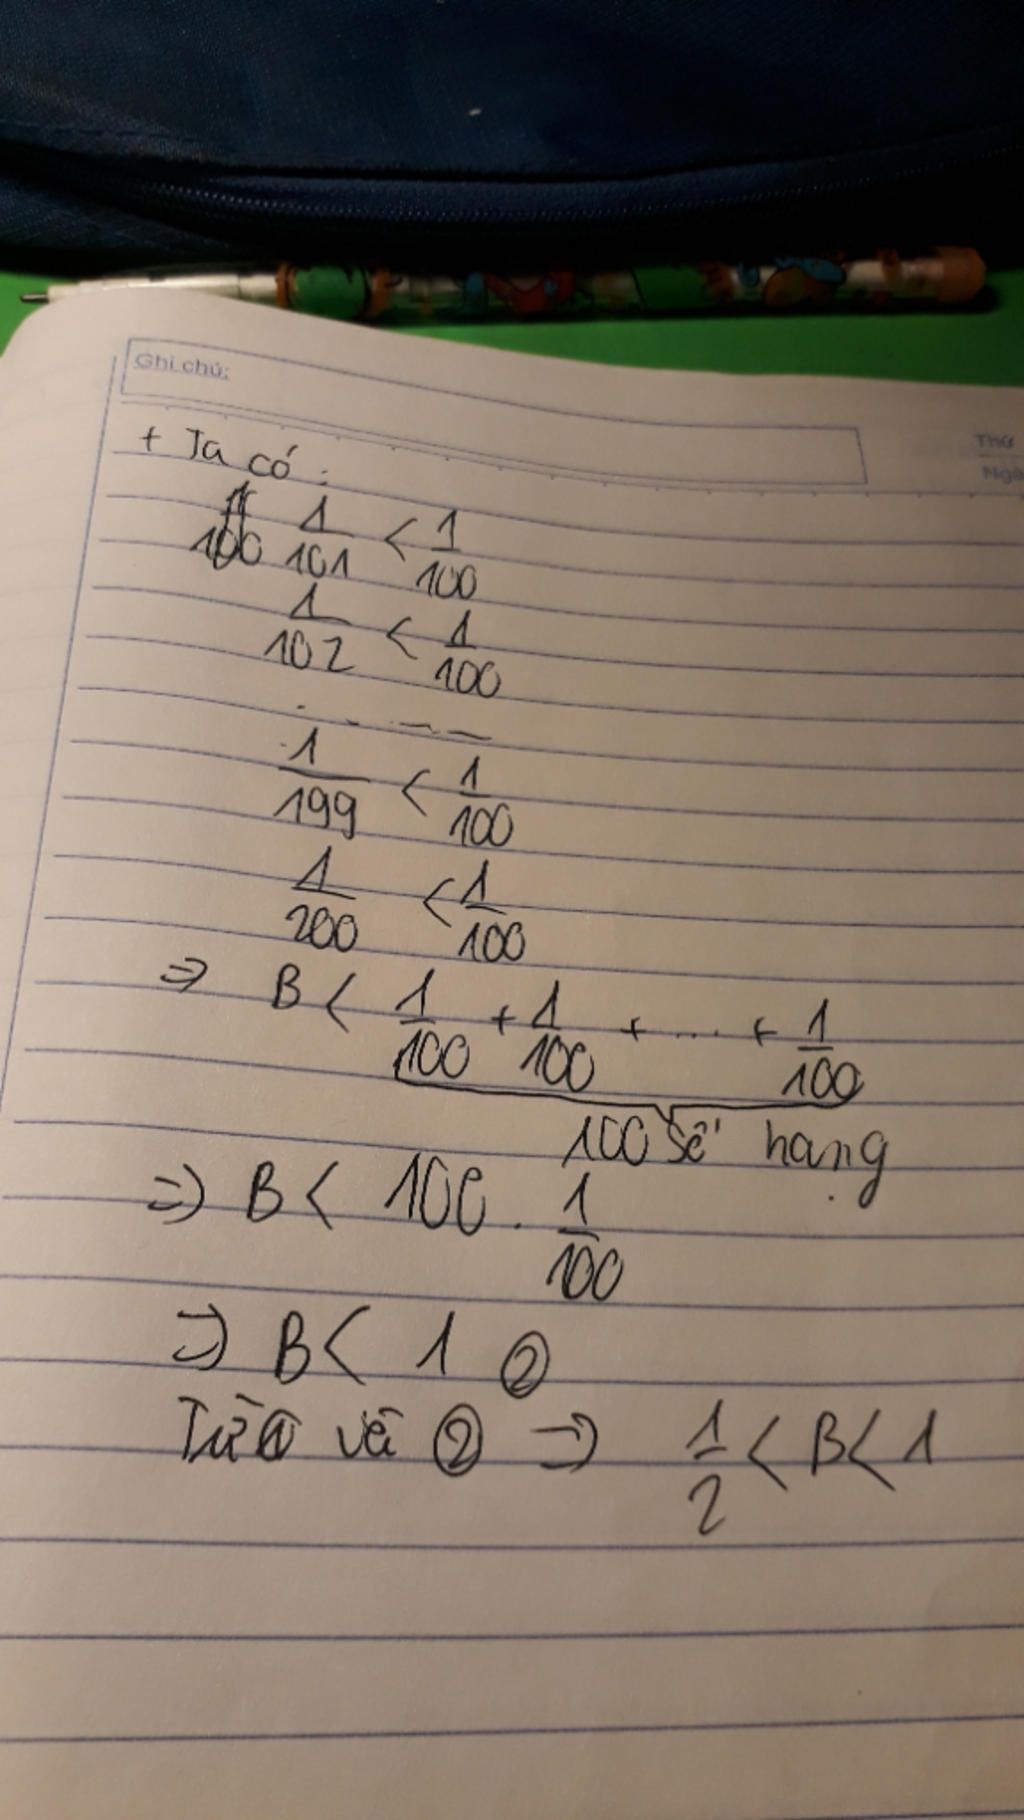 Ghi chú:
Thứ
Ngà
+ Ta có:
1/101 < 1/100
1/102 < 1/100
. - - -
1/199 < 1/100
1/200 < 1/100
=> B < 1/100 + 1/100 + .... + 1/100
100 số hạng
=> B < 100 . 1/100
=> B < 1 ②
Từ ① và ② => 1/2 < B < 1